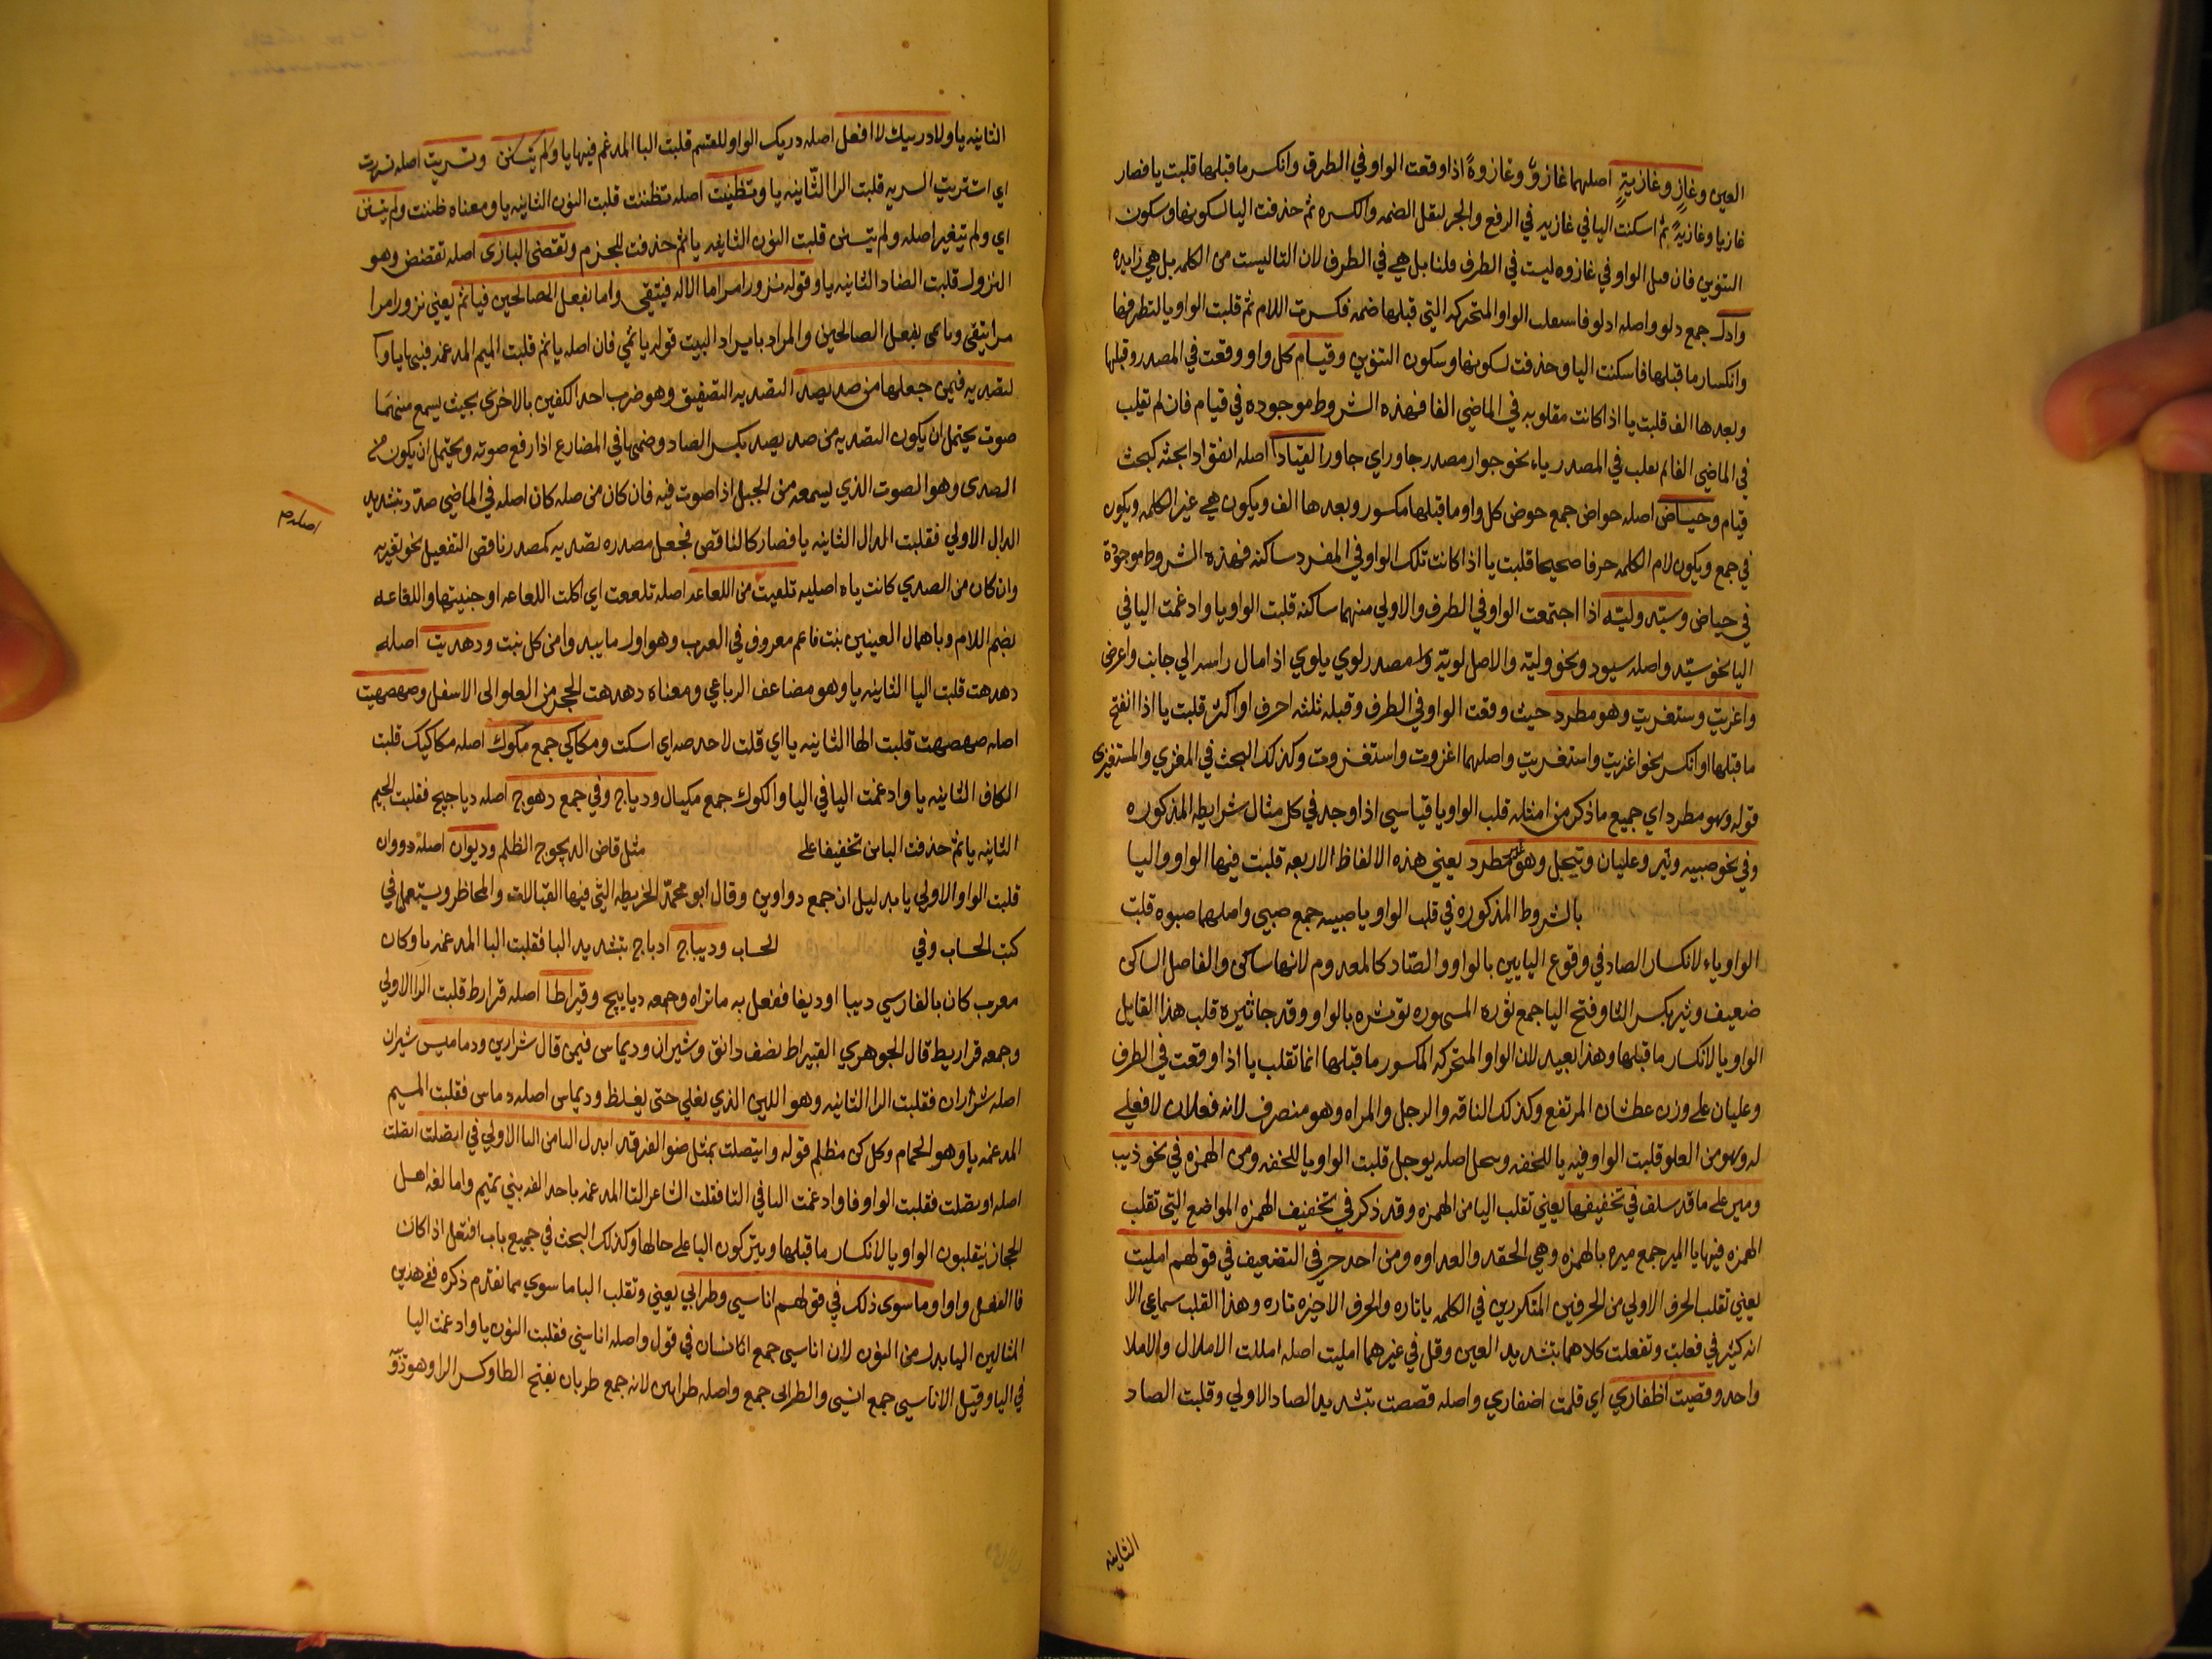 العين وغازٍ وغازيةٍ اصلهما غازوٌ وغازوةً اذا وقعت الواو في الطرف وانكسر ما قبلها قلبت يا فصار
غازيا وغازيةً ثم اسكنت اليا في غازيه في الرفع والجر لثقل الضمه والكسره ثم حذفت اليا لسكونها وسكون
التنوين فان قيل الواو في غازوه ليست في الطرف قلنا بل هي في الطرف لان التا ليست من الكلمه بل هي زايده
وادلٍ جمع دلو واصله ادلو فاستعلت الواو المتحركه التي قبلها ضمه فكسرت اللام ثم قلبت الواو يا لتطرفها
وانكسار ما قبلها فاسكنت اليا وحذفت لسكونها وسكون التنوين وقيام كل واو وقعت في المصدر وقبلها
وبعدها الف قلبت يا اذا كانت مقلوبه في الماضي الفا فهذه الشروط موجوده في قيام فان لم تقلب
في الماضي الفا لم تقلب في المصدر ياء نحو جوار مصدر جاور اي جاور القيادا اصله انقوادا بحثه كبحث
قيام وحياض اصله حواض جمع حوض كل واو ما قبلها مكسور وبعدها الف ويكون هي عين الكلمه ويكون
في جمع ويكون لام الكلمه حرفا صحيحا قلبت يا اذا كانت تلك الواو في المفرد ساكنه فهذه الشروط موجودة
في حياض وسيّد وليّه اذا اجتمعت الواو في الطرف والاولي منهما ساكنه قلبت الواو يا وادغمت اليا في
اليا نحو سيّد واصله سيود ونحو وليّه والاصل لويّه والمصدر لوي يلوي اذا مال راسه الي جانب واعرض
واغزيت وستغزيت وهو مطرد حيث وقعت الواو في الطرف وقبله ثلثه احرف او اكثر قلبت يا اذا انفتح
ما قبلها او انكسر نحو اغزيت واستغزيت واصلهما اغزوت واستغزوت وكذلك البحث في المغزي والمستغزي
قوله وهو مطرد اي جميع ما ذكر من امثله قلب الواو يا قياسي اذا وجد في كل مثال شرايطه المذكوره
وفي نحو صبيه وثير وعليان وييجل وهو غير مطرد يعني هذه الالفاظ الاربعه قلبت فيها الواو واليا
بالشروط المذكوره في قلب الواو يا صبيه جمع صبي واصلها صبوه قلبت
الواو ياء لانكسار الصاد في وقوع اليايين بالواو والصّاد كالمعدوم لانها ساكن والفاصل الساكن
ضعيف وثير بكسر الثا وفتح اليا جمع ثوره المشهوره ثوثره بالواو وقد جا ثيره قلب هذا القايل
الواو يا لانكسار ما قبلها وهذا بعيد لان الواو المتحركه المكسور ما قبلها انما تقلب يا اذا وقعت في الطرف
وعليان على وزن عطشان المرتفع وكذلك الناقه والرجل والمراه وهو منصرف لانه فعلان لا فعلي
له وهو من العلو قلبت الواو فيه يا للخفه وييجل اصله يوجل قلبت الواو يا للخفه ومن الهمزه في نحو ذيب
ومير على ما قد سلف في تخفيفها يعني تقلب اليا من الهمزه وقد ذكر في تخفيف الهمزه المواضع التي تقلب
الهمزه فيها يا المير جمع ميره بالهمزه وهي الحقد والعداوه ومن احد حرفي التضعيف في قولهم امليت
يعني تقلب الحرف الاولي من الحرفين المتكررين في الكلمه يا تاره والحرف الاخيره تاره وهذا القلب سماعي الا
انه كثير في فعلت وتفعلت كلاهما بتشديد العين وقل في غيرهما امليت اصله امللت الاملال والاملا
واحد وقصيت اظفاري اي قلمت اضفاري واصله قصصت بتشديد الصاد الاولي وقلبت الصاد
الثانيه
الثانيه يا ولا وربيك لا افعل اصله وربك الواو للقسم قلبت البا المدغم فيها يا ولم يتسن وتسريت اصله تسررت
اي اشتريت السريه قلبت الرا الثّانيه يا وتظنيت اصله تظننت قلبت النون الثانيه يا ومعناه ظننت ولم يتسن
اي ولم يتغير اصله ولم يتسنن قلبت النون الثانيه يا ثم حذفت للجزم وتقضى البازى اصله تقضض وهو
النزول قلبت الضاد الثانيه يا وقوله نزور امرا اما الاله فيتقي واما بفعل الصالحين فياتمي يعني نزور امرا
مرا يتقي وياتمى بفعل الصالحين والمراد بايراد البيت قوله ياتمي فان اصله ياتم قلبت الميم المدغمه فيها يا وا
لتصديه فيمن جعلها من صد يصد التصديه التصفيق وهو ضرب احد الكفين بالاخرى بحيث يسمع منهما
صوت يحتمل ان يكون التصديه من صد يصد بكسر الصاد وضمها في المضارع اذا رفع صوته ويحتمل ان يكون من
الصدى وهو الصوت الذي ليسمعه من الجبل اذا صوت فيه فان كان من صله كان اصله في الماضي صدّد بتشديد
الدال الاولي فقلبت الدال الثانيه يا فصار كالناقص فجعل مصدره تصديه كمصدر ناقص التفعيل نحو تغزيه
وان كان من الصدي كانت ياه اصليه تلعيت من اللعاعه اصله تلععت اي اكلت اللعاعه او جنيتها واللعاعه
بضم اللام وباهمال العينين بنت ناعم معروف في العرب وهو اول ما يبدوا من كل بنت ودهديت اصله
دهدهت قلبت اليا الثانيه يا وهو مضاعف الرباعي ومعناه دهدهت الحجر من العلو الى الاسفل وصهصيت
اصله صهصهت قلبت الها الثانيه يا اي قلت لاحد صه اي اسكت ومكاكي جمع مكوك اصله مكاكيك قلبت
الكاف الثانيه يا وادغمت اليا في اليا والكوك جمع مكيال ودياج وفي جمع دهوج اصله دياجيج فقلبت الجيم
الثانيه يا ثم حذفت اليا من تخفيفا على مثل قاض الديجوج الظلم وديوان اصله دووان
قلبت الواو الاولي يا بدليل ان جمع دواوين وقال ابو محمدّ الخريطه التي فيها القبالات والمحاظر ويستعمل في
كتب الحساب وفي الحساب وديباج ادباج بتشديد البا فقلبت البا المدغمه يا وكان
معرب كان بالفارسي ديبا او ديفا ففعل به ما تراه وجمعه دبايبج وقيراطا اصله قراريط قلبت الرا الاولي
وجمعه قراريط قال الجوهري القيراط نصف دانق وشيران وديماس فيمن قال شرارين ودماميس شيران
اصله شرّاران فقلبت الرا الثانيه وهو اللبن الذي يغلي حتى يغلظ وديماس اصله دماس فقلبت الميم
المدغمه يا وهو الحمام وكل كن مظلم قوله وايتصلت بمثل ضوا الفرقد ابدل اليا من التا الاولي في اتصلت اتصلت
اصله اوتصلت فقلبت الواو فا وادغمت التا في التا فقلت الشاعر التا المدغمه يا حد الغه بني تميم واما لغه اهل
الحجاز يقلبون الواو يا لانكسار ما قبلها ويتركون اليا على حالها وكذلك البحث في جميع باب افتعل اذا كان
فا الفعل واوا وما سوى ذلك في قولهم اناسي وظرابي يعني وتقلب اليا ما سوي مما تقدم ذكره ففي هذين
المثالين اليا بدل من النون لان اناسي جمع انسان في قول واصله اناسين فقلبت النون يا وادغمت اليا
في اليا وقيل الاناسي جمع انسي والظرابى جمع واصله ظرابين لانه جمع ظربان بفتح الظا وكسر الرا وهو دوّ
اصله م